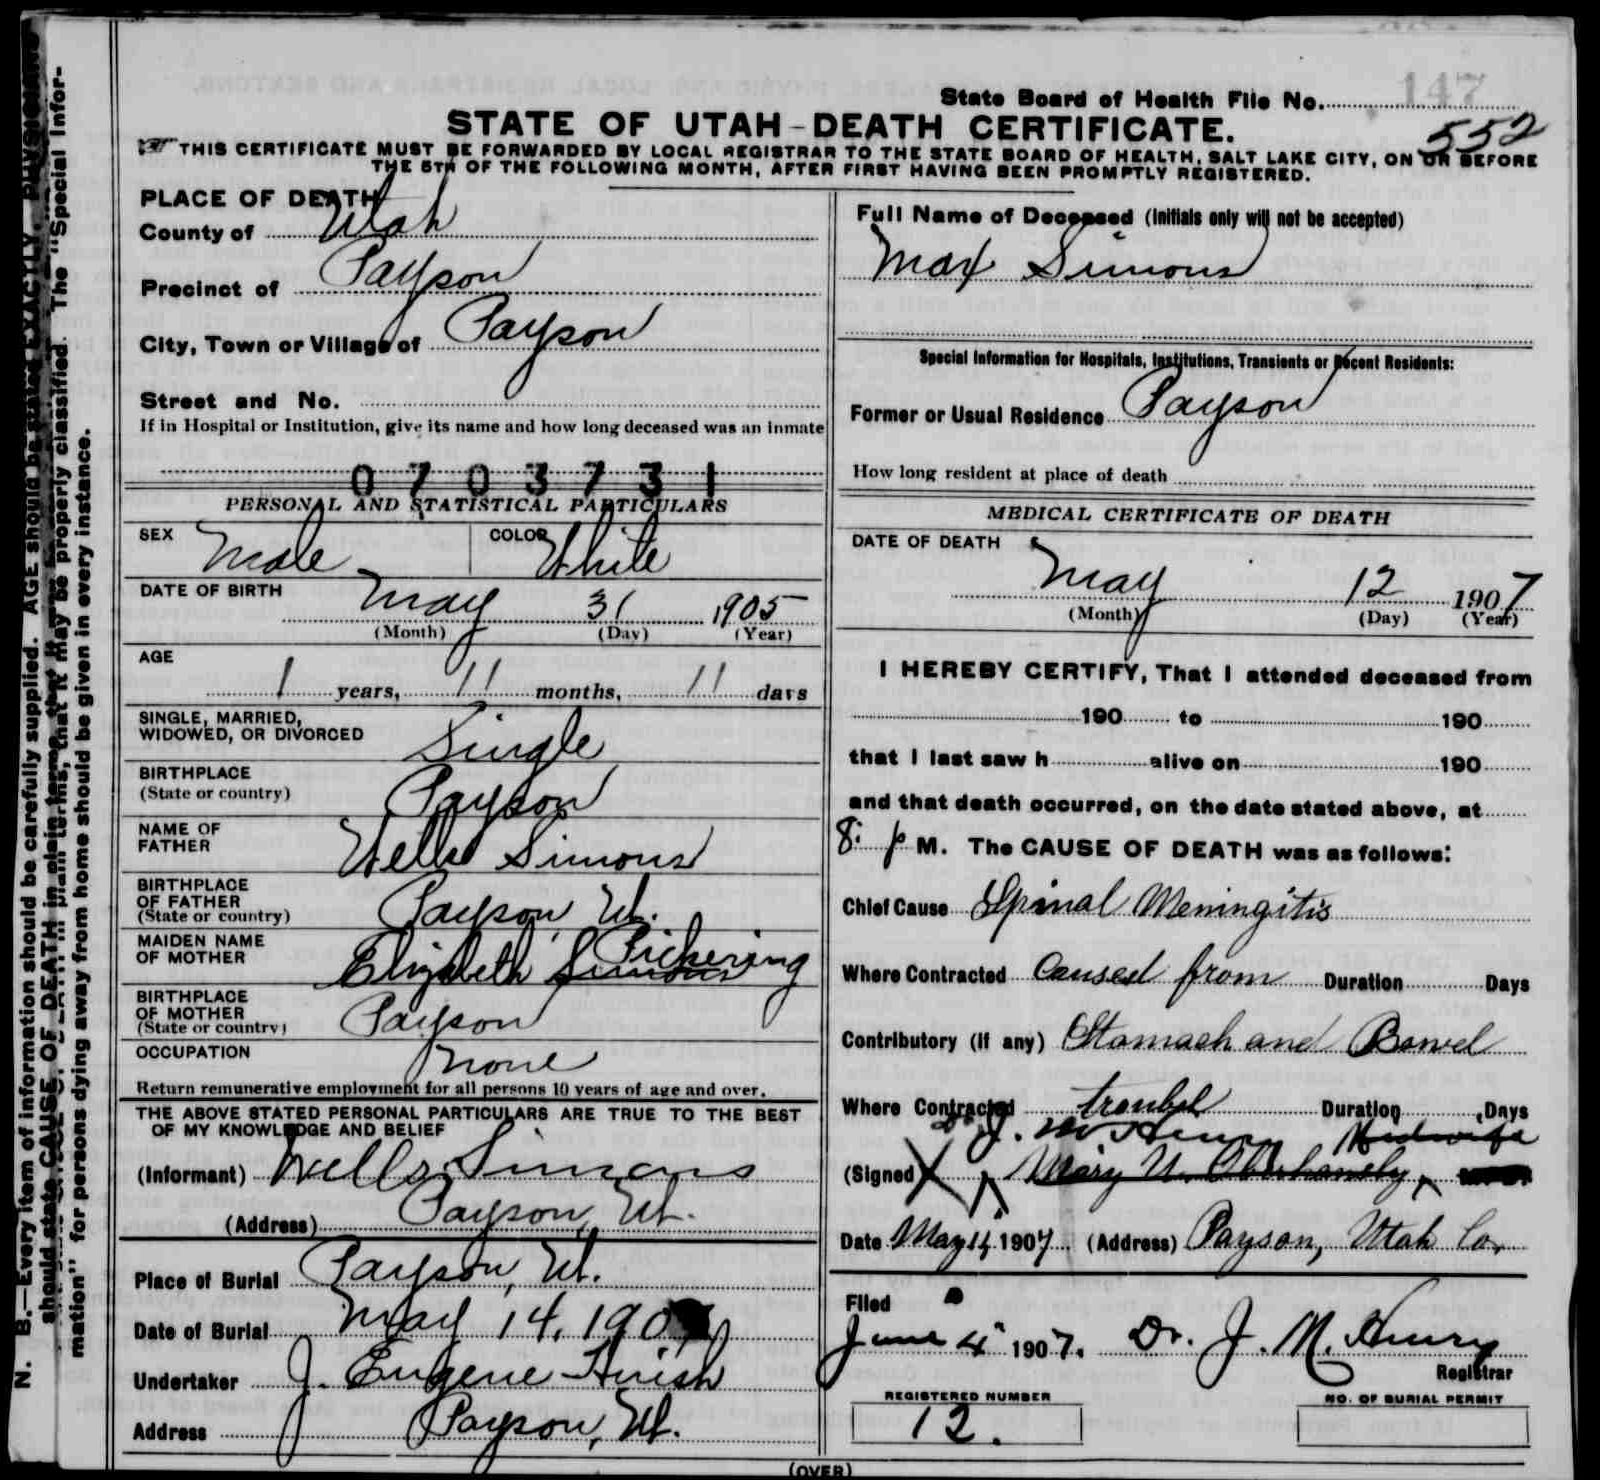 147
State Board of Health File No.
552
STATE OF UTAH-DEATH CERTIFICATE.
THIS CERTIFICATE MUST BE FORWARDED BY LOCAL REGISTRAR TO THE STATE BOARD OF HEALTH, SALT LAKE CITY, ON OR BEFORE
THE 5TH OF THE FOLLOWING MONTH, AFTER FIRST HAVING BEEN PROMPTLY REGISTERED.
PLACE OF DEATH
County of Utah
Precinct of Payson
City, Town or Village of Payson
Street and No.
If in Hospital or Institution, give its name and how long deceased was an inmate
0703731
PERSONAL AND STATISTICAL PARTICULARS
SEX Male COLOR White
DATE OF BIRTH May 31 1905
(Month) (Day) (Year)
AGE
1 years, 11 months, 11 days
SINGLE, MARRIED,
WIDOWED, OR DIVORCED Single
BIRTHPLACE
(State or country) Payson
NAME OF
FATHER Wells Simons
BIRTHPLACE
OF FATHER
(State or country) Payson, Ut.
MAIDEN NAME
OF MOTHER Elizabeth Simons Pickering
BIRTHPLACE
OF MOTHER
(State or country) Payson
OCCUPATION None
Return remunerative employment for all persons 10 years of age and over.
THE ABOVE STATED PERSONAL PARTICULARS ARE TRUE TO THE BEST
OF MY KNOWLEDGE AND BELIEF
(Informant) Wells Simons
(Address) Payson, Ut.
Place of Burial Payson, Ut.
Date of Burial May 14, 1907
Undertaker J. Eugene Hirish
Address Payson, Ut.
Full Name of Deceased (Initials only will not be accepted)
Max Simons
Special Information for Hospitals, Institutions, Transients or Recent Residents:
Former or Usual Residence Payson
How long resident at place of death
MEDICAL CERTIFICATE OF DEATH
DATE OF DEATH
May 12 1907
(Month) (Day) (Year)
I HEREBY CERTIFY, That I attended deceased from
190 to 190
that I last saw h alive on 190
and that death occurred, on the date stated above, at
8: p M. The CAUSE OF DEATH was as follows:
Chief Cause Spinal Meningitis
Where Contracted Caused from Duration Days
Contributory (if any) Stomach and Bowel
Where Contracted troubel Duration Days
Dr. J. M. Henry Midwife
(Signed) Mary N.
Date May 14, 1907 (Address) Payson, Utah Co.
Filed
June 4 1907. Dr. J. M. Henry
Registrar
REGISTERED NUMBER
12.
NO. OF BURIAL PERMIT
(OVER)
N. B.—Every item of information should be carefully supplied. AGE should be stated EXACTLY. PHYSICIANS
should state CAUSE OF DEATH in plain terms, that it may be properly classified. The "Special Infor-
mation" for persons dying away from home should be given in every instance.